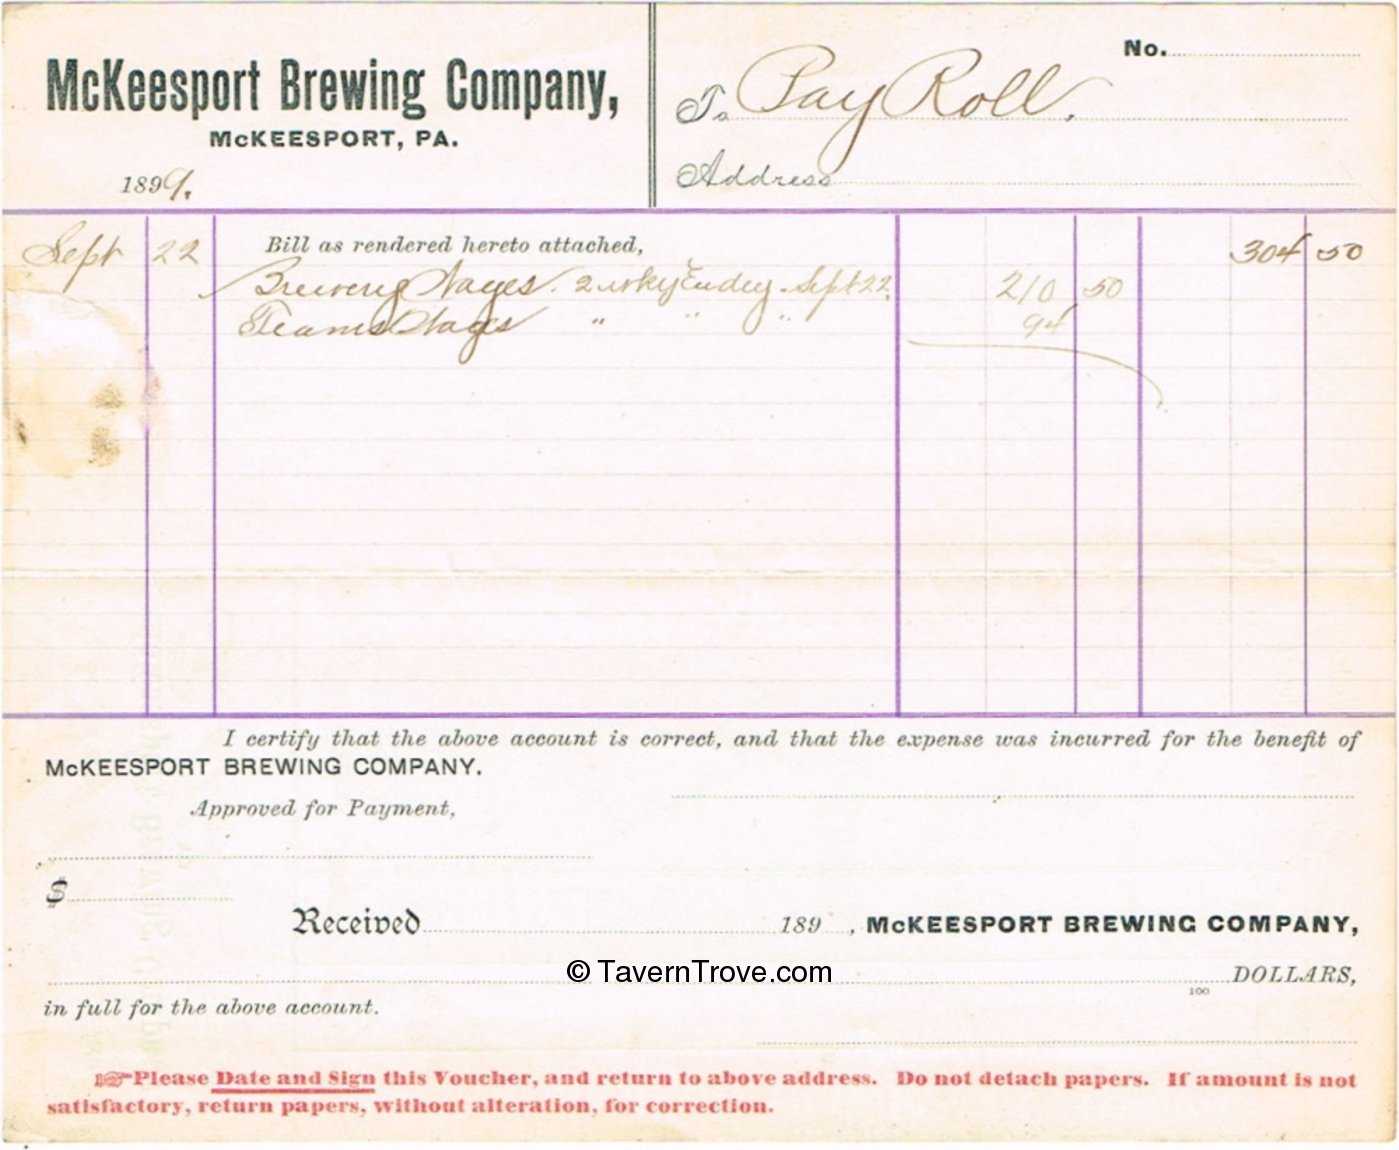 McKeesport Brewing Company,
McKEESPORT, PA.
1899.
No.
To Pay Roll.
Address
Sept 22 Bill as rendered hereto attached, 304 50
Brewery Wages. 2 wky Endg. Sept 22. 210 50
Teams Wages " " " 94
I certify that the above account is correct, and that the expense was incurred for the benefit of
McKEESPORT BREWING COMPANY.
Approved for Payment,
$
Received 189 , McKEESPORT BREWING COMPANY,
© TavernTrove.com
100 DOLLARS,
in full for the above account.
☞Please Date and Sign this Voucher, and return to above address. Do not detach papers. If amount is not
satisfactory, return papers, without alteration, for correction.